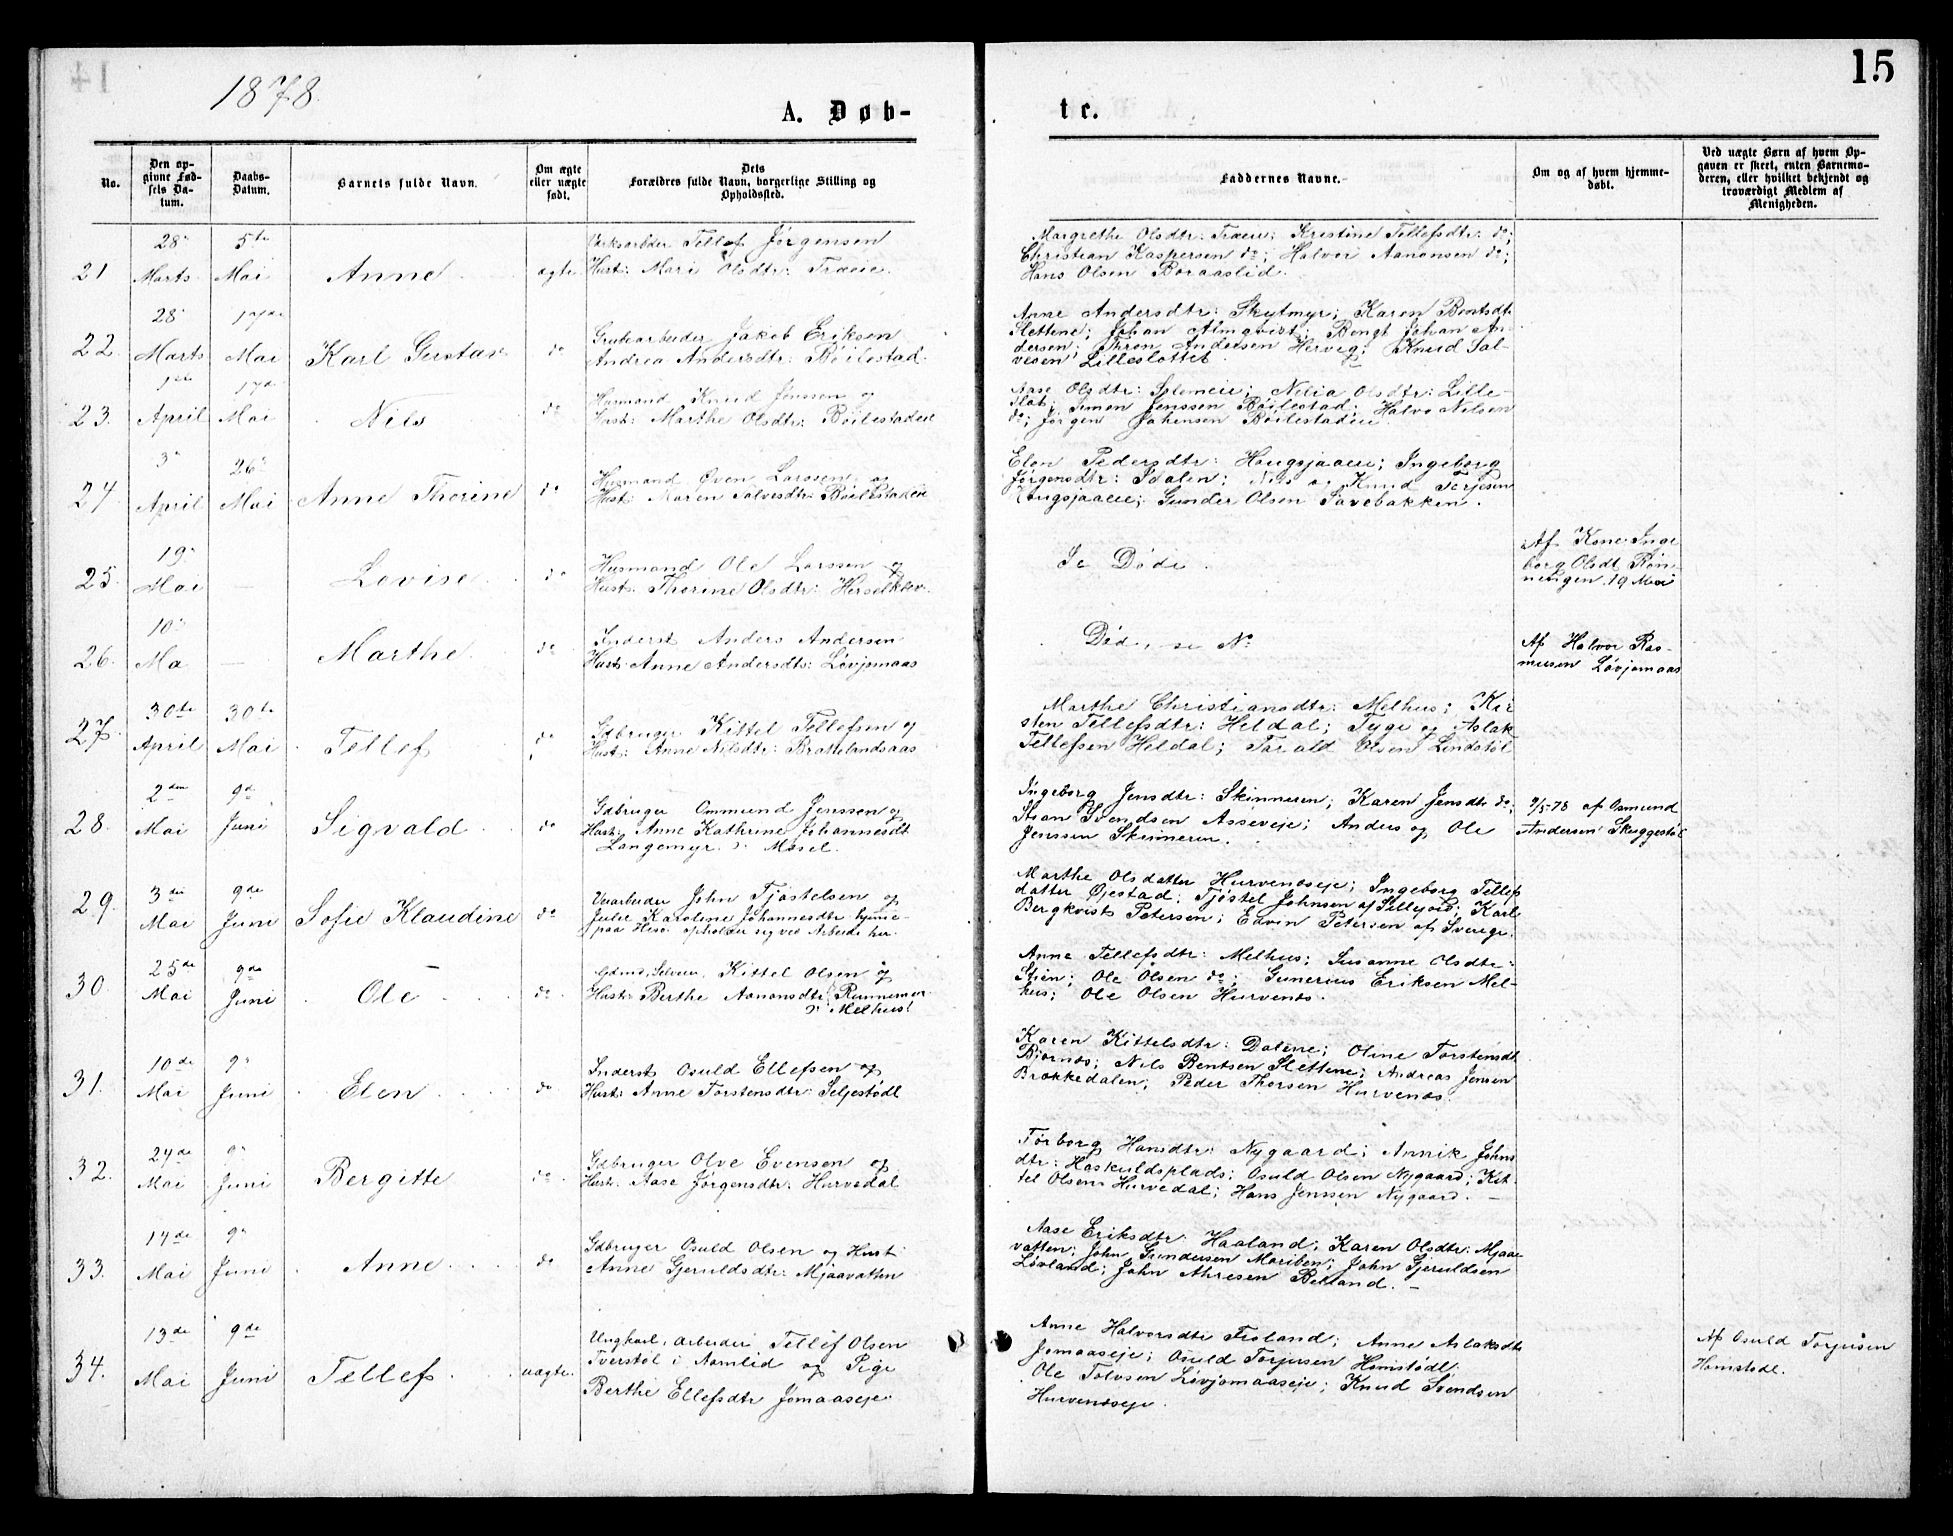 15
1878.
A. Døb-
te.
No.
Den op-
givne Fød-
sels Da-
tum.
Daabs-
Datum.
Barnets fulde Navn.
Om ægte
eller uægte
født.
Dets
Forældres fulde Navn, borgerlige Stilling og
Opholdssted.
Faddernes Navne.
Om og af hvem hjemme-
døbt.
Ved uægte Børn af hvem Op-
gaven er skeet, enten Barnemo-
deren, eller hvilket bekjendt og
troværdigt Medlem af
Menigheden.
21
28
Marts
5te
Mai
Anne
ægte
Tellef Jørgensen
Hust: Mari Olsdtr: Træeie.
Margrethe Olsdtr: Træeie; Kristine Tellefsdtr: do;
Christian Kaspersen do; Halvor Aanonsen do;
Hans Olsen Boraaslid.
22.
28
Marts
17de
Mai
Karl Gustav
do
Grubearbeider Jakob Eriksen
Andrea Andersdtr: Bøilestad.
Anne Andersdtr: Skytmyr; Karen Bentsdtr
Slettene; Johan Almqvist; Bengt Johan An-
dersen; Thron Andersen Hervig; Knud Sal-
vesen Lilleslottet.
23.
1ste
April
17de
Mai
Nils
do
Husmand Knud Jenssen og
Hust: Marthe Olsdtr: Bøilestadeie
Aase Olsdtr: Nelia Olsdtr: Lille-
slot; Simon Jenssen Bøilestad; Halvo Nilsen
do; Jørgen Johensen Bøilestadeie.
24.
3
April
26
Mai
Anne Thorine
do
Husmand Øven Larssen og
Hust: Maren Salvesdtr: Bøilestadeie
Elen Pedersdtr: Haugsjaaeie; Ingeborg
Jørgensdtr: Dalen; Nils og Knud Terjesen
Haugsjaaeie; Gunder Olsen Savebakken.
25.
19
Mai
—
Lovise
do
Husmand Ole Larssen og
Hust: Thorine Olsdtr:
Se Døde.
Af Kone Inge
borg Olsdt Røn-
ningen 19 Mai
26.
10
Ma
—
Marthe
do
Inderst Anders Andersen
Hust: Anne Andersdtr: Løvjomaas
Død, se No
Af Halvor Ras-
musen Løvjomaas
27.
30te
April
30te
Mai
Tellef
do
Gdbruger Kittel Tellefsen og
Hust: Anne Nilsdtr: Brattelandsaas
Marthe Christiansdtr: Melhus; Kir
sten Tellefsdtr: Heldal; Tyge og Aslak
Tellefsen Heldal; Tarald Olsen Lindstøl
28.
2den
Mai
9de
Juni
Sigvald
do
Gdbruger Ommund Jenssen og
Hust: Anne Kathrine Johannesdt
Langemyr Mosel.
Ingeborg Jensdtr: Skinneren; Karen Jensdt do;
Svendsen Asseveie; Anders og Ole
Jenssen Skinneren.
9/5-78 af Osmund
Andersen Skuggestøl
29.
3die
Mai
9de
Juni
Sofie Klaudine
do
Veiarbeider John Tjøstelsen og
Julie Karoline Johannesdtr hjemme-
paa Hisø opholder sig ved Arbeide her.
Marthe Olsdatter Hurvenæseje; Ingeborg Tellefs
datter Øiestad; Tjøstel Johnsen af Sillejord; Karl
Bergkvist Petersen; Edvin Petersen af Sverige.
30.
25de
Mai
9de
Juni
Ole
do
Gdmd, Selveier, Kittel Olsen og
Hust: Berthe Aanonsdtr
Melhus!
Anne Tellefsdtr: Melhus; Susanne Olsdtr:
Stien; Ole Olsen do; Gunerius Eriksen Mel-
hus; Ole Olsen Hurvenæs.
31.
10de
Mai
9
Juni
Elen
do
Inderst Osuld Ellefsen og
Hust: Anne Torstensdtr: Seljestødl
Karen Kittelsdtr: Dalene; Oline Torstensdt
Bjornæs; Nils Bentsen Slettene; Andreas Jensen
Brækkedalen; Peder Thorsen Hurvenæs.
32.
24de
Mai
9
Juni
Bergitte
do
Gdbruger Olve Evensen og
Hust: Aase Jørgensdtr: Hurvedal
Torborg Hansdtr: Nygaard; Annik Johns
dtr: Haskuldsplads; Osuld Olsen Nygaard; Kit-
tel Olsen Hurvedal; Hans Jenssen Nygaard. —
33.
14de
Mai
9
Juni
Anne
do
Gdbruger Osuld Olsen og Hust
Anne Gjeruldsdtr: Mjaavathn
Aase Eriksdtr: Haaland; Karen Olsdtr: Mjaa-
vatten; John Gundersen Moriben; John Gjeruldsen
Løvland; John Belland. —
34.
13de
Mai
9de
Juni
Tellef
uægte
Ungkarl, arbeider Tellef Olsen
Tverstøl i Aamlid og Pige
Berthe Ellefsdtr Jomaaseje
Anne Halvorsdtr Froland; Anne Aslaksdtr
Jomaaseje; Osuld Torjusen Homstødl;
Ole Tolvsen Løvjomaaseje; Knud Svendsen
Hurvenæseje.
Af Osuld Torjusen
Homstødl.